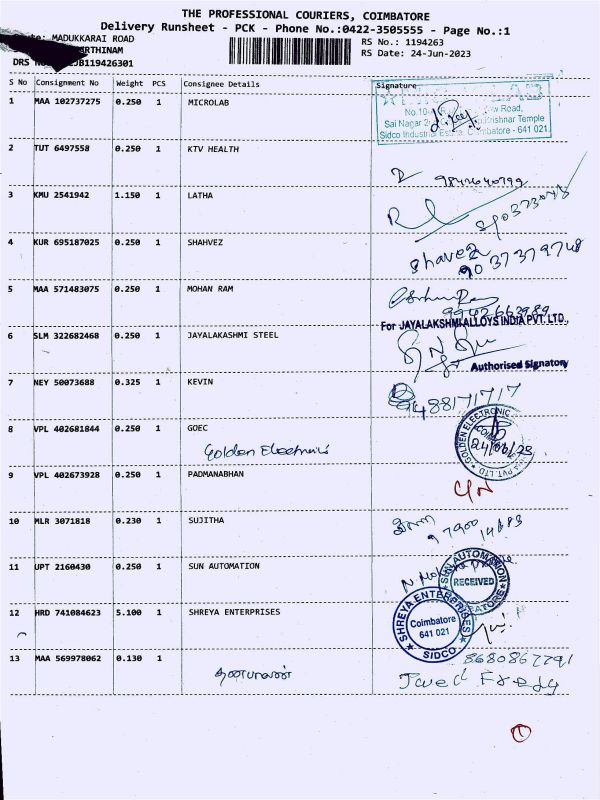 THE PROFESSIONAL COURIERS, COIMBATORE
Delivery Runsheet - PCK - Phone No.:0422-3505555 - Page No.:1
MADUKKARAI ROAD
RS No.: 1194263
RS Date: 24-Jun-2023
DRS
S No Consignment No Weight PCS Consignee Details Signature
1 MAA 102737275 0.250 1 MICROLAB
Road,
Sai Nagar Krishnar Temple
Sidco Industrial Coimbatore - 641 021
2 TUT 6497558 0.250 1 KTV HEALTH
9842640799
3 KMU 2541942 1.150 1 LATHA
4 KUR 695187025 0.250 1 SHAHVEZ
Shavez
9037379748
5 MAA 571483075 0.250 1 MOHAN RAM
9942663989
For JAYALAKSHMI ALLOYS INDIA PVT. LTD.,
6 SLM 322682468 0.250 1 JAYALAKASHMI STEEL
Authorised Signatory
7 NEY 50073688 0.325 1 KEVIN
9488171717
8 VPL 402681844 0.250 1 GOEC
Golden Electronics
GOLDEN ELECTRONIC
24/06/23
9 VPL 402673928 0.250 1 PADMANABHAN
10 MLR 3071818 0.230 1 SUJITHA
97900 14683
11 UPT 2160430 0.250 1 SUN AUTOMATION
SUN AUTOMATION
RECEIVED
12 HRD 741084623 5.100 1 SHREYA ENTERPRISES
SHREYA ENTERPRISES
Coimbatore
641 021
SIDCO
13 MAA 569978062 0.130 1
தனபாலன்
8680862291
Javed
1